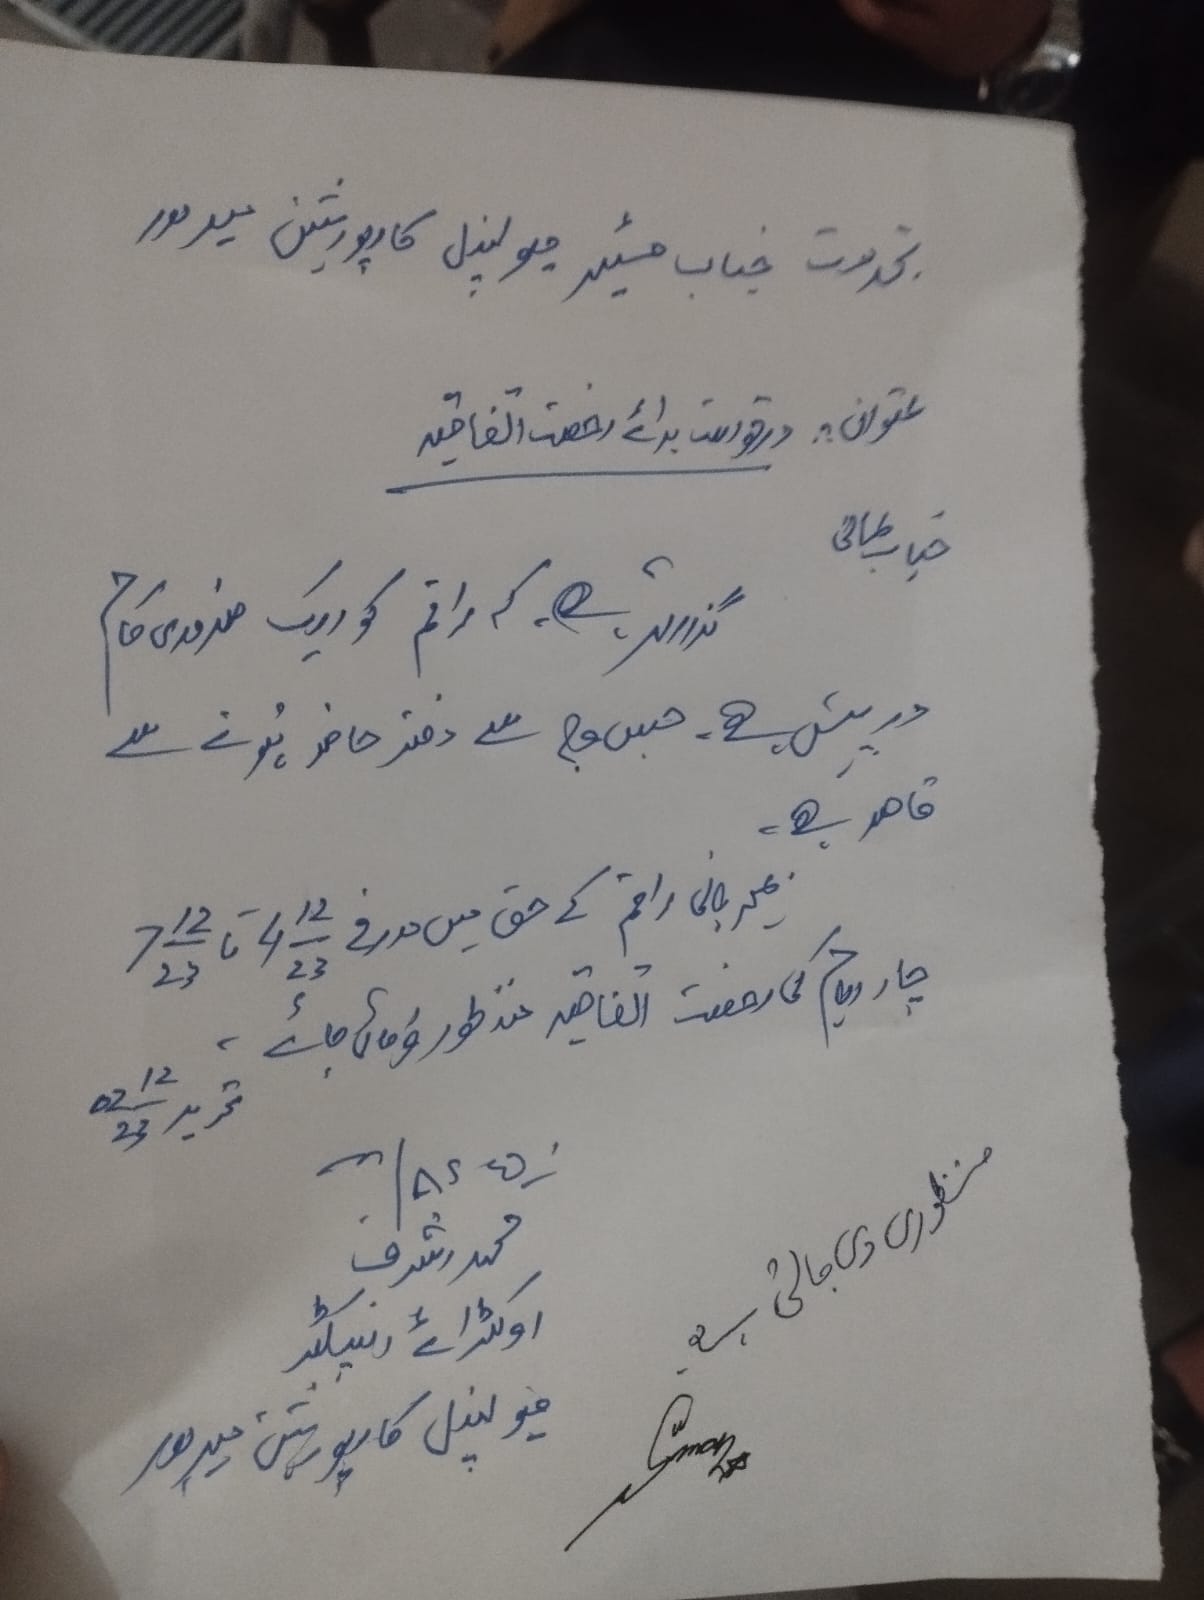 بخدمت جناب مئیر میونسپل کارپوریشن میرپور
عنوان:۔ درخواست برائے رخصت اتفاقیہ
جناب عالی
گذارش ہے۔ کہ راقم کو ایک ضروری کام
درپیش ہے۔ جس وجہ سے دفتر حاضر ہونے سے
قاصر ہے۔
بمہربانی راقم کے حق میں مورخہ 4 12/23 تا 7 12/23
چار ایام کی رخصت اتفاقیہ منظور فرمائی جائے۔
تحریر 02 12/23
محمد اشرف
اوکٹرائے انسپکٹر
میونسپل کارپوریشن میرپور
منظوری دی جاتی ہے۔